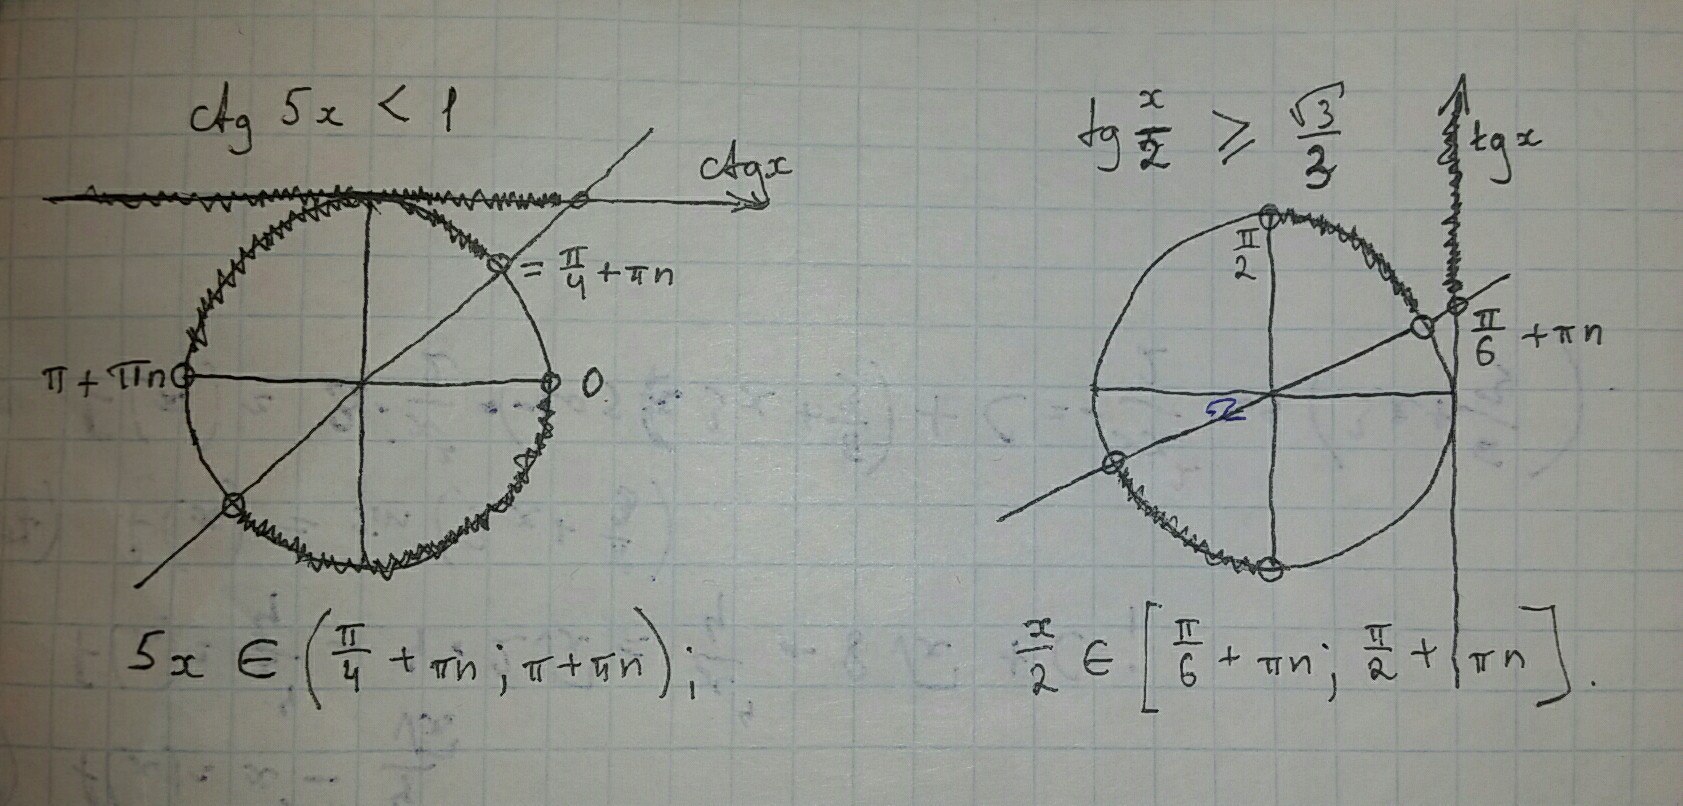 ctg 5x < 1
ctgx
= π/4 + πn
π + πn
0
5x ∈ (π/4 + πn; π + πn);
tg x/2 ⩾ √3/3
tgx
π/2
π/6 + πn
x/2 ∈ [π/6 + πn; π/2 + πn].